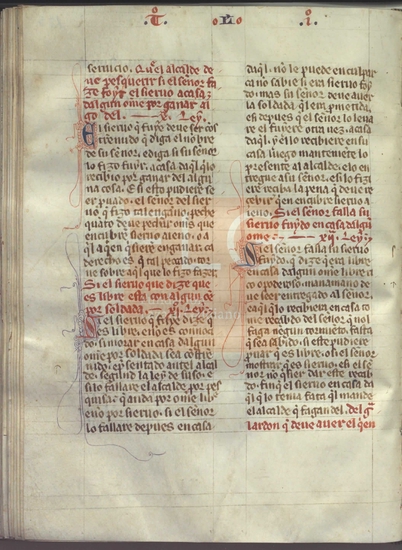 T. oLo .i.
seruicio. Qu̅ el alcalde de
ue pesquerir si el señor fa
ze foyr el sieruo a casa
dalgun ome por ganar al
go del. x. Ley.
El sieruo q̅ fuye deue ser cos
tre̅nido q̅ diga el no̅bre
de su señor. e diga si su señor
lo fizo fuyr. a casa daq̅l q̅ lo
recibio por ganar del algu̅
na cosa. E si esto pudiere se
er puado. el señor del sier
uo. q̅ fizo tal engaño. peche
quatro
encubre sieruo aieno. o a
q̅l a q̅en q̅siere engañar. ca
derecho es q̅ tal pecado. tor
ne sobre aq̅l que lo fizo fazer.
Si el sieruo que dize que
es libre esta con algun o̅e
por soldada. xi. Ley.
Si el sieruo q̅ fuye dize q̅
es libre.
si morar en casa dalgun
ome por soldada sea costre
nido.
de. segund la ley de suso. e
si lo fallare el alcalde por pes
quisa. q̅ anda por ome libre
e no por sieruo. si el señor
lo fallare depues en casa
daq̅l. no le puede enculpar
ca no sabie si era sieruo fuy
do. mas su señor deue auer
la soldada q̅l era p̅metida.
e si depues q̅ el señor lo leua
re el fuyere otra uez. a casa
daq̅l. y el lo recibiere en su
casa luego mantenete lo
presente al alcalde. e lo en
tregue a su señor. e si lo fizi
ere reciba la pena q̅ deue re
cebir q̅ en encubre sieruo a
ieno. Si el señor falla su
sieruo fuydo en casa dalgu̅
ome. xij. Ley.
Si el señor falla su sieruo
fuydo. q̅ dize q̅ era libre
en casa dalgun ome libre. u
o poderoso. mana mano de
ue seer entregado al señor.
e aq̅l q̅ lo recibiera en casa to
me recabdo del señor q̅ nol
faga ningun torme̅to. fasta
q̅ sea sabido. si este pudiere
puar q̅ es libre. o si el señor
mostrar q̅ es sieruo. e si el se
ñor no q̅sier dar este recab
do. tu̅q̅ el sieruo en casa da
q̅l q̅ lo tenia fata q̅l mande
el alcalde q̅ fagan del. del g̅
lardon q̅ deue auer el q̅en